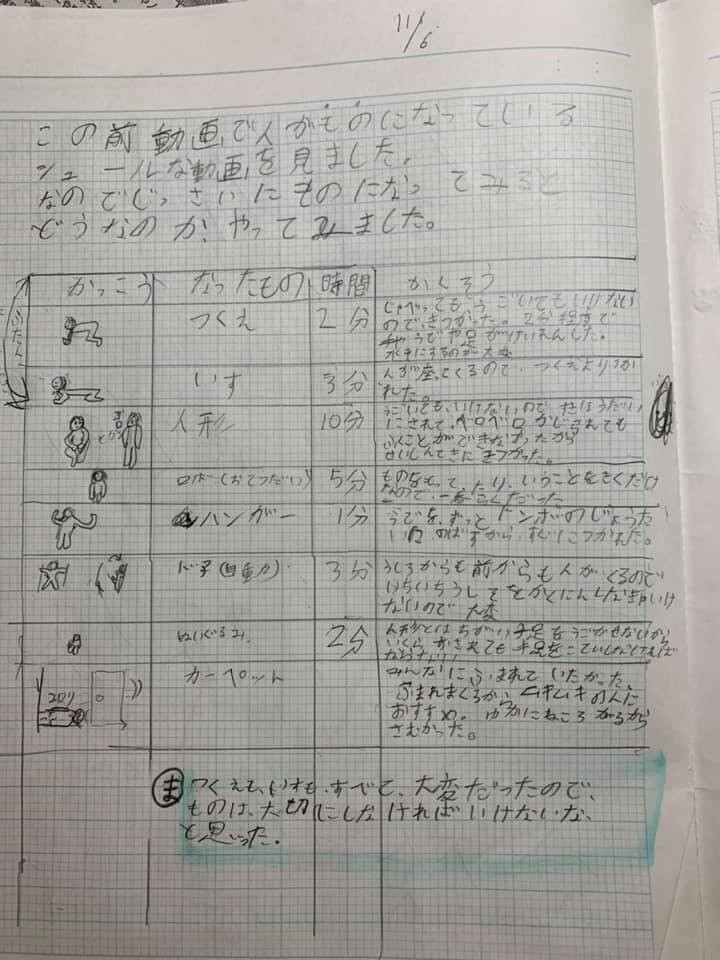 11/6
この前動画で人がものになっている
シュールな動画を見ました。
なのでじっさいにものになってみて
どうなのか、やってみました。
かっこう なったもの 時間 かくろう
つくえ 2分
しゃべってもうごいてもいけない
ので、きつかった。2分程度で
うでや足がけいれんした。
水平にするのが大変
いす 3分
人が座ってくるので、つくえよりつか
れた。
人形 10分
うごいても、いけないので
にされて、ベロベロかじられても
ふくことができなかったから
せいしんてきにきつかった。
ロボ(おてつだい) 5分
ものをもってったり、いうことをきくだけ
なので、一番らくだった
ハンガー 1分
うでを、ずっとトンボのじょうた
いに、のばすから、すぐにつかれた。
ドア(自動力) 3分
うしろからも前からも人がくるので
いちいちうしろをかくにんしなければいけ
ないので大変
ぬいぐるみ 2分
人形とはちがい手足をうごかせないから
いくらおされても手足をこていしなければ
ならない!
カーペット
コロリ
みんなにふまれていたかった、
ふまれまくるから、ムキムキの人に
おすすめ。ゆかにねころがるから
さむかった。
ま つくえも、いすも、すべて、大変だったので、
ものは、大切にしなければいけないな、
と思った。